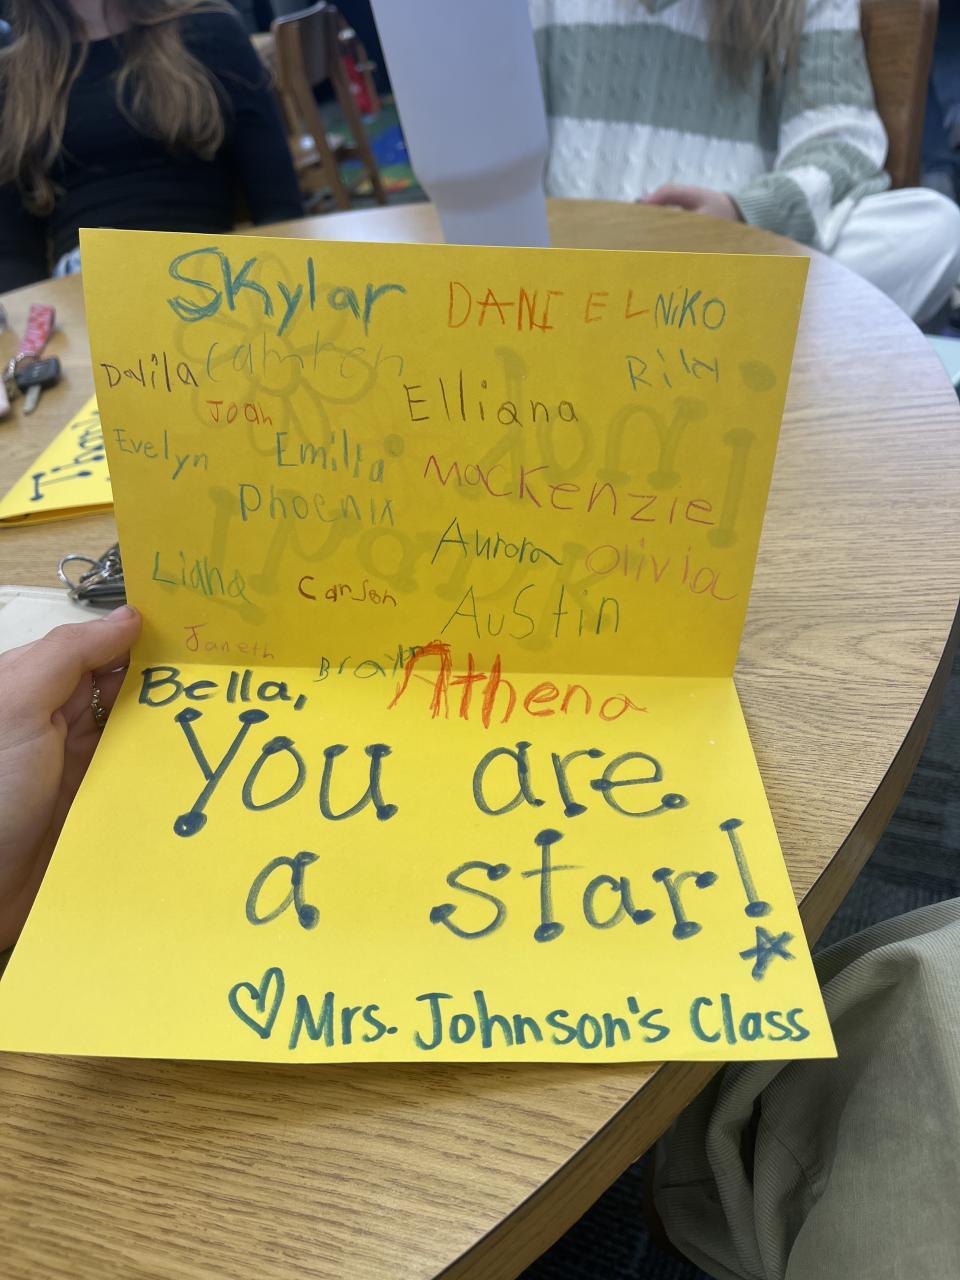 Skylar DANIEL NIKO
Camren Rily
Davila
Joah Elliana
Evelyn Emilia Mackenzie
Phoenix
Aurora Olivia
Liana Carson Austin
Janeth
Athena
Bella,
You are
a star!
♡Mrs. Johnson's Class